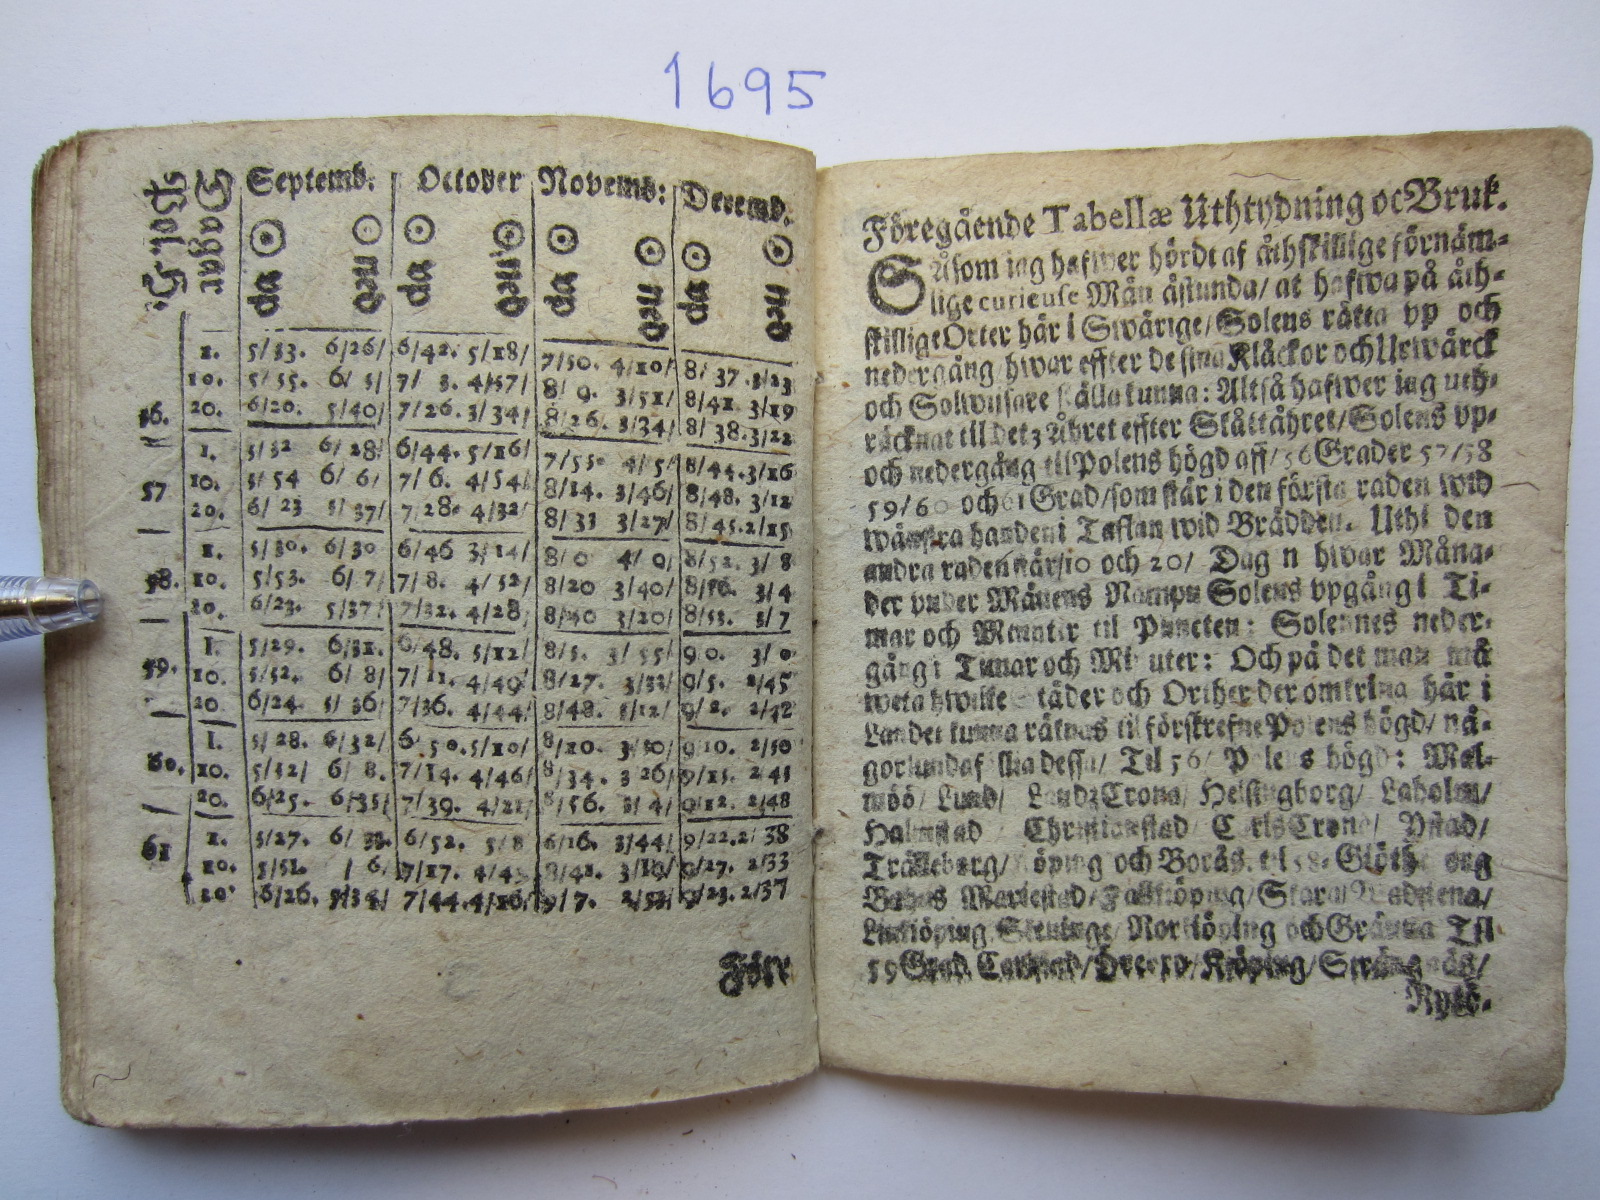 1695
Septemb. October Novemb: Decemb.
Dagar
1. 5/33. 6/26/ 6/42. 5/18/ 7/50. 4/10/ 8/37.3/23
10. 5/55. 6/ 5/ 7/ 3. 4/57/ 8/ 9. 3/51/ 8/41 3/19
20. 6/20. 5/40/ 7/26. 3/34/ 8/26. 3/34/ 8/38.3/22
57
1. 5/32 6/28/ 6/44. 5/16/ 7/55. 4/5/ 8/44.3/16
10. 5/54 6/ 6/ 7/ 6. 4/54/ 8/14. 3/46/ 8/48. 3/12
20. 6/ 23 5/37/ 7/28. 4/32/ 8/33 3/27/ 8/45.2/15
58.
1. 5/30. 6/30 6/46 3/14/ 8/0 4/ 0/ 8/52. 3/ 8
10. 5/53. 6/ 7/ 7/ 8. 4/52/ 8/20 3/40/ 3/4
20. 6/23. 5/37/ 7/32. 4/28/ 8/40 3/20/ 8/53. 3/7
59.
1. 5/29. 6/31. 6/48. 5/12/ 8/5. 3/55/ 9 0. 3/ 0
10. 5/52. 6/ 8/ 7/ 11. 4/49/ 8/27. 3/33/ 9/5. 2/45
20. 6/24. 5/36/ 7/36. 4/44/ 8/48. 9/
60.
1. 5/28. 6/32/ 6 50.5/10/ 8/10. 3/50/ 9/10. 2/50
10. 5/52/ 6/ 8. 7/14. 4/46/ 8/34. 3 26/ 9/15. 2 45
20. 6/25. 6/35/ 7/39. 4/21/ 8/56. 3/ 4/ 9/12. 2/48
61
1. 5/27. 6/ 33. 6/52. 5/8 6/16. 3/44/ 9/22.2/ 38
10. 5/51. / 6/ 7/17. 4/43 8/41. 3/19/ 9/27. 2/33
20. 6/26. 5/34/ 7/44.4/16/ 9/7. 2/53/ 9/23.2/37
Före
Föregående Tabellæ Uthtydning oc Bruk.
SÅsom iag hafwer hördt af åthskillige förnäm-
lige curieuse Män åstunda/ at hafwa på åth-
skillige Orter här i Swärige/ Solens rätta vp och
nedergång hwar effter de sina Klåckor och Urwärck
och Solwijsare ställa kunna: Altså hafwer iag uth-
räcknat til detz Åhret effter Skåttåhret/ Solens vp-
och nedergång till Polens högd aff/ 56 Grader 57/58
59/60 och 61 Grad/ som står i den första raden wid
wänstra handen i Taflan wid Brädden. Uthi den
andra raden står/10 och 20/ Dag n hwar Måna-
der under Månens Nampn Solens vpgång i Ti-
mar och Minuter til Puncten: Solennes neder-
gång i Timar och Mi uter: Och på det man må
weta hwilke Städer och Orther der omkring här i
Landet kunna räknas til förskrefne Polens högd/ nå-
gorlunda dessa/ Til 56/ Polens högd: Mal-
möö/ Lund/ LandzCrona/ Helsingborg/ Laholm/
Halmstad Christianstad/ CarlsCrona/ Ystad/
Trälleborg/ Köping och Borås. til 58. Göth org
Bahus Mariestad/ Falkiöping/ Skara/ Wadstena/
Linkiöping, Skeninge/ Norkiöping och Gränna Til
59 Grad. Carlstad/ Örebro/ Kiöping/ Strängnäs/